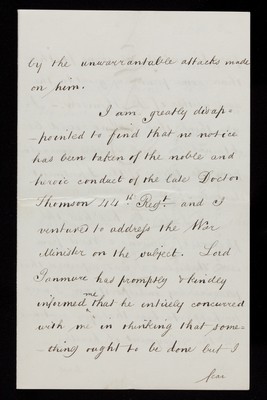 by the unwarrantable attacks made
on him.
I am greatly disap-
-pointed to find that no notice
has been taken of the noble and
heroic conduct of the late Doctor
Thomson 44th Regt. and I
ventured to address the War
Minister on the subject. Lord
Panmure has promptly & kindly
informed me that he entirely concurred
with me in thinking that some-
-thing ought to be done but I
fear